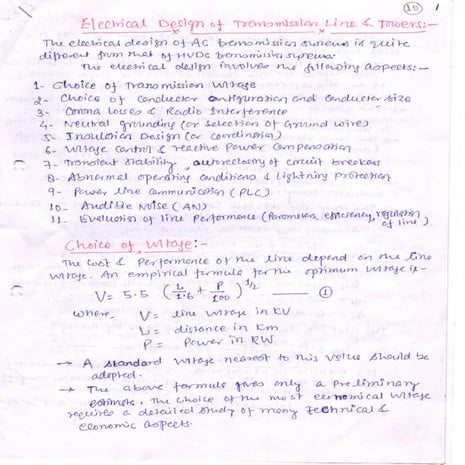 10
1
Electrical Design of Transmission Line & Towers:-
The electrical design of AC transmission systems is quite
different from that of HVDC transmission systems.
The electrical design involves the following aspects:-
1- Choice of Transmission Voltage
2- Choice of conductor configuration and conductor size
3- Corona losses & Radio Interference
4- Neutral grounding (or selection of Ground wire)
5- Insulation Design (or coordination)
6- Voltage Control & reactive Power Compensation
7- Transient Stability, autoreclosing of circuit breakers
8- Abnormal operating conditions & lightning protection
9- Power line Communication (PLC)
10- Audible Noise (AN)
11- Evaluation of line Performance (Parameters, efficiency, regulation of line)
Choice of Voltage:-
The Cost & Performance of the line depend on the line
voltage. An empirical formula for the optimum voltage is-
V = 5.5 (L/1.6 + P/100)^1/2 —— ①
where, V = line voltage in KV
L = distance in Km
P = Power in KW
→ A standard voltage nearest to this value should be
adopted.
→ The above formula gives only a preliminary
estimate. The choice of the most economical voltage
requires a detailed study of many technical &
economic aspects.